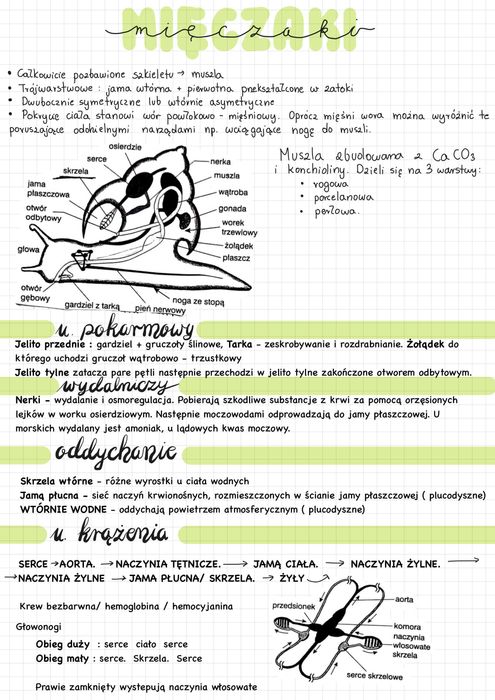 MIĘCZAKI
mięczaki
• Całkowicie pozbawione szkieletu → muszla
• Trójwarstwowe : jama wtórna + pierwotna przekształcone w zatoki
• Dwubocznie symetryczne lub wtórnie asymetryczne
• Pokrycie ciała stanowi wór powłokowo - mięśniowy. Oprócz mięśni wora można wyróżnić te
poruszające oddzielnymi narządami np. wciągające nogę do muszli.
Muszla zbudowana z CaCO3
i konchioliny. Dzieli się na 3 warstwy:
• rogowa
• porcelanowa
• perłowa.
osierdzie
serce
skrzela
jama
płaszczowa
otwór
odbytowy
głowa
otwór
gębowy
gardziel z tarką
pień nerwowy
noga ze stopą
nerka
muszla
wątroba
gonada
worek
trzewiowy
żołądek
płaszcz
u. pokarmowy
Jelito przednie : gardziel + gruczoły ślinowe, Tarka - zeskrobywanie i rozdrabnianie. Żołądek do
którego uchodzi gruczoł wątrobowo - trzustkowy
Jelito tylne zatacza parę pętli następnie przechodzi w jelito tylne zakończone otworem odbytowym.
wydalniczy
Nerki - wydalanie i osmoregulacja. Pobierają szkodliwe substancje z krwi za pomocą orzęsionych
lejków w worku osierdziowym. Następnie moczowodami odprowadzają do jamy płaszczowej. U
morskich wydalany jest amoniak, u lądowych kwas moczowy.
oddychanie
Skrzela wtórne - różne wyrostki u ciała wodnych
Jamą płucna - sieć naczyń krwionośnych, rozmieszczonych w ścianie jamy płaszczowej ( plucodyszne)
WTÓRNIE WODNE - oddychają powietrzem atmosferycznym ( plucodyszne)
u. krążenia
SERCE →AORTA. →NACZYNIA TĘTNICZE. → JAMĄ CIAŁA. → NACZYNIA ŻYLNE. →
→NACZYNIA ŻYLNE → JAMA PŁUCNA/ SKRZELA. → ŻYŁY
Krew bezbarwna/ hemoglobina / hemocyjanina
Głowonogi
Obieg duży : serce ciało serce
Obieg mały : serce. Skrzela. Serce
Prawie zamknięty występują naczynia włosowate
przedsionek
aorta
komora
naczynia
włosowate
skrzela
serce skrzelowe